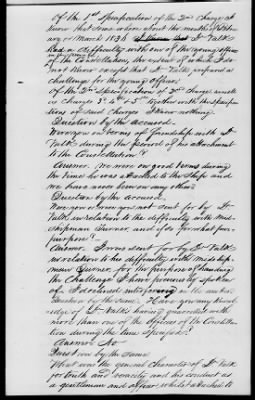 Of the 1st Specification of the 2nd Charge I
know that some where about the months of Febru-
ary or March 1836 Lt Valk
had a difficulty with one of the young officers
of the Constellation, the extent of which I do
not know except that Lt Valk, refused a
challenge from the young officer.
Of the 2nd Specification of 2nd charge, as well
as Charge 3d 4th & 5th together with the specifica-
tions of said Charges I know nothing.
Question by the accused.
Were you on terms of friendship with Lt
Valk, during the period of his attachment
to the Constellation?
Answer. We were on good terms during
the time he was attached to the Ship and
we have never been on any other.
Question by the accused.
Were you or were you not sent for by Lt
Valk, in relation to the difficulty with Mid-
shipman Turner, and if so for what pur-
purpose?
Answer. I was sent for by Lt Valk,
in relation to his difficulty with Midship-
man Turner, for the purpose of handing
the challenge I have previously spoken
of
Question by the same. Have you any knowl-
edge of Lt Valk's having quarreled with
more than one of the officers of the Constella-
tion during the time specified?
Answer No
Question by the same
What was the general character of Lt Valk
for truth and veracity and his conduct as
a gentleman and officer whilst attached to